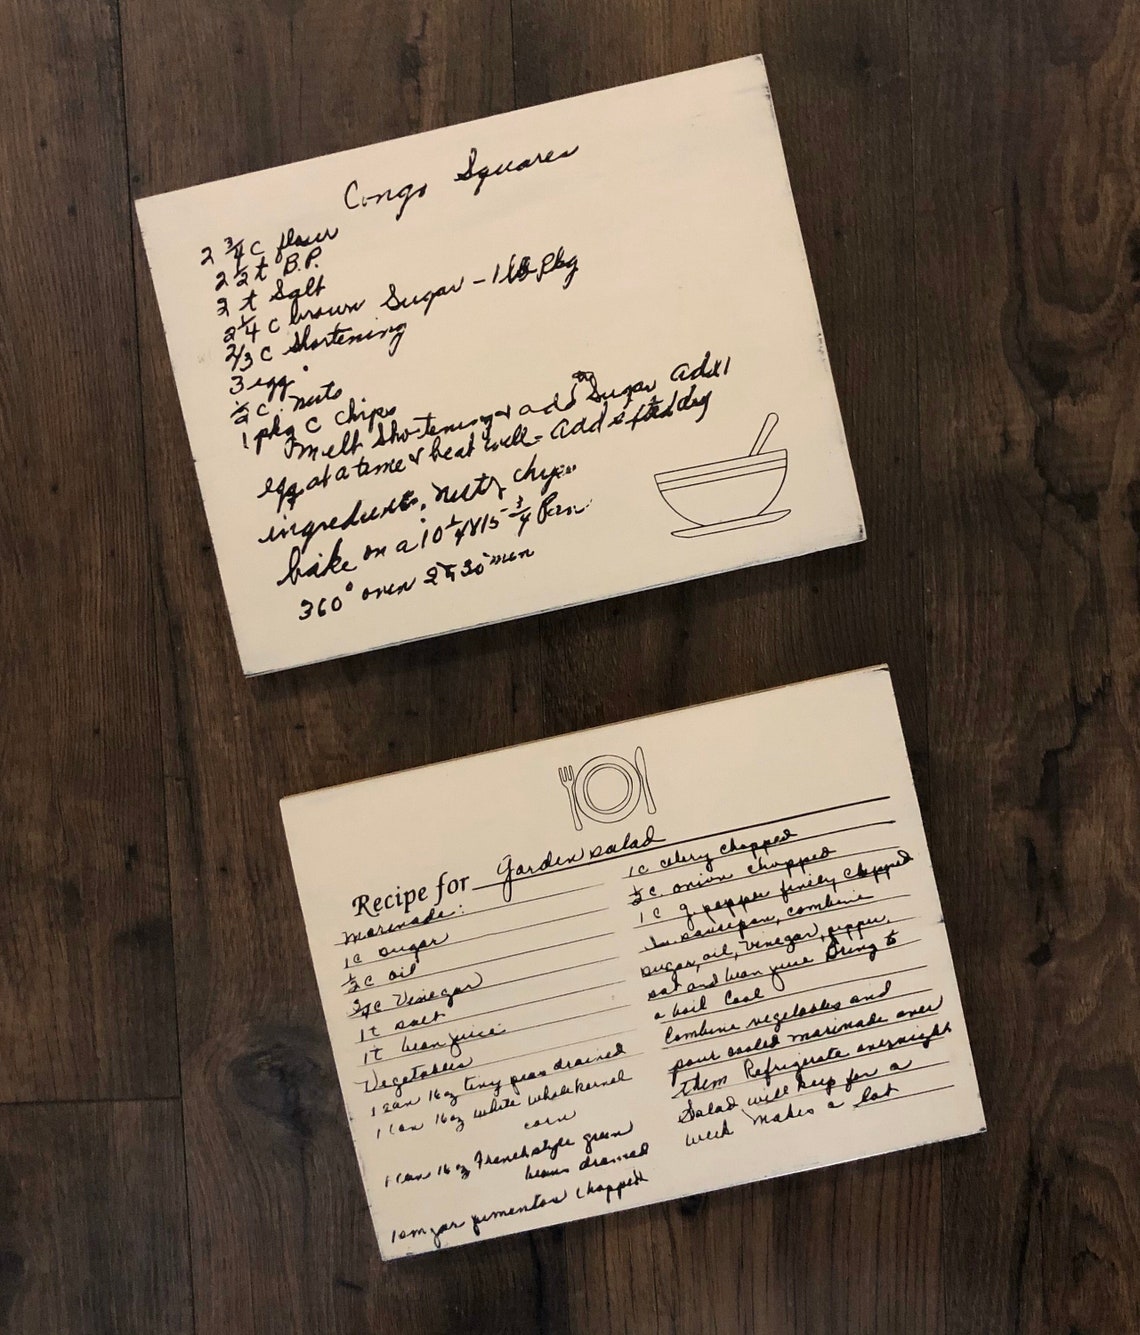 Congo Squares
2 3/4 c flour
2 1/2 t B.P.
2 t Salt
2 1/4 c brown Sugar - 1 lb pkg
2/3 c Shortening
3 egg
1/2 c nuts
1 pkg C chips
melt Shortening & add Sugar add 1
egg at a time & beat well - add sifted dry
ingredients, nuts, chips
bake on a 10 1/4 x 15 3/4 Pan
360° oven 25 30 min
Recipe for Garden salad
Marinade:
1c sugar
1/2 c oil
3/4 c Vinegar
1t salt
1t bean juice
Vegetables
1 can 16 oz tiny peas drained
1 can 16 oz white whole kernel
corn
1 can 16 oz French style green
beans drained
1 sm jar pimentos chopped
1c celery chopped
1/2 c. onion chopped
1 c g. pepper finely chopped
In saucepan, combine
sugar, oil, vinegar, pepper,
salt and bean juice Bring to
a boil Cool
Combine vegetables and
pour cooled marinade over
them Refrigerate overnight
Salad will keep for a
week Makes a lot